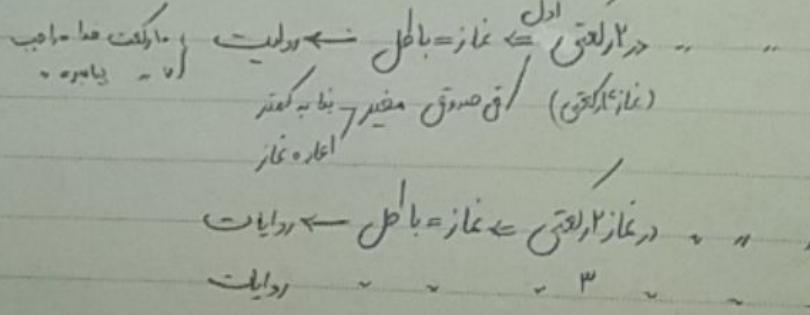 〃 〃 در ۲ رکعتی اول ⇐ نماز = باطل ← روایت { ۱۰ رکعت خدا واجب
۷ 〃 پیامبر 〃
(نماز ۴ رکعتی) / آقای صدوق مخیر بنا به کمتر
اعاده نماز
〃 〃 در نماز ۲ رکعتی ⇐ نماز = باطل ← روایات
〃 〃 ۳ 〃 〃 〃 روایات